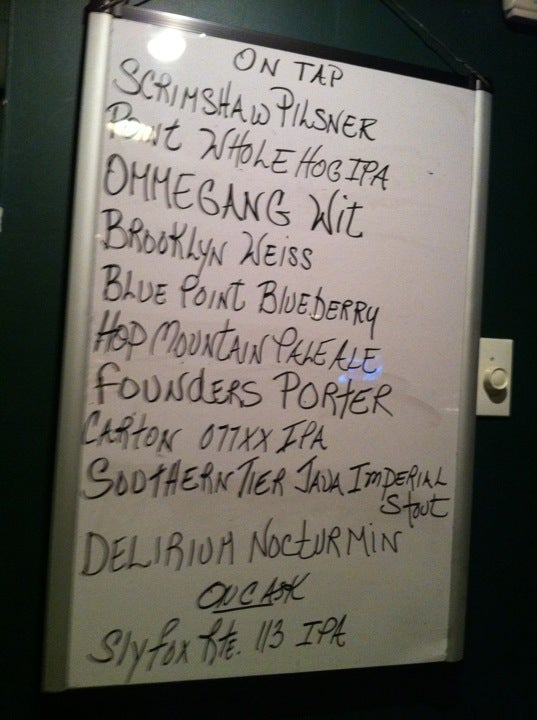 ON TAP
SCRIMSHAW PILSNER
Point WHOLE HOG IPA
OMMEGANG Wit
BROOKLYN WEISS
BLUE POINT BLUEBERRY
HOP MOUNTAIN PALE ALE
FOUNDERS PORTER
CARTON 077XX IPA
SOUTHERN TIER JAVA IMPERIAL
Stout
DELIRIUM NOCTURMIN
ON CASK
Slyfox Rte. 113 IPA